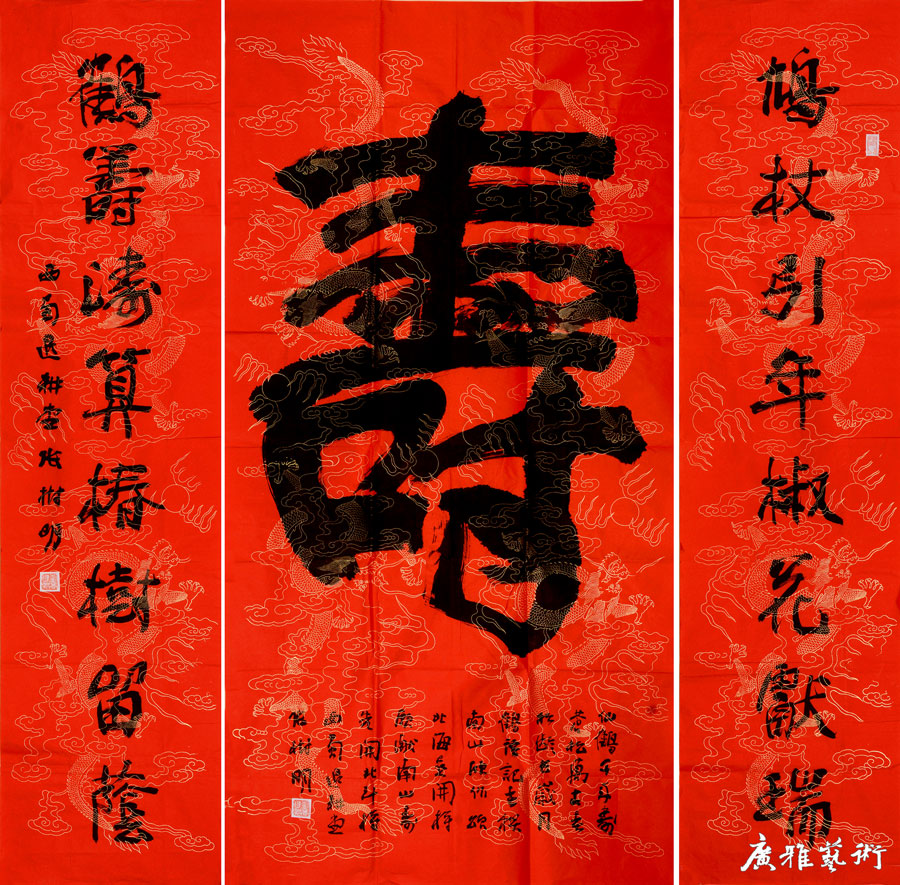 鳩杖引年椒花獻瑞
壽
仙鶴千年壽
蒼松萬古春
松齡長歲月
鶴語記春秋
南山欣作頌
北海喜開樽
獻南山壽
先開北斗樽
西蜀退耕堂
張樹明
鶴籌添算椿樹留蔭
西蜀退耕堂張樹明
廣雅藝術